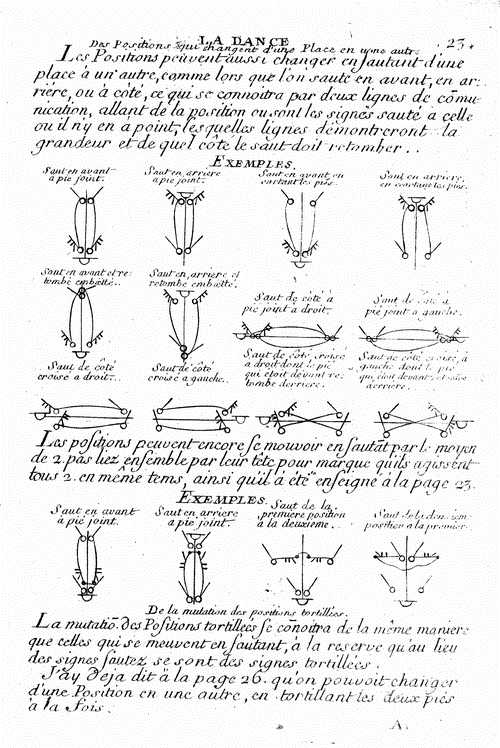 LA DANCE
23.
Des Positions qui changent d'une Place en une autre
Les Positions peuvent aussi changer en sautant d'une
place à un autre, comme lors que l'on saute en avant, en ar:
riére, ou à côté, ce qui se connoitra par deux lignes de cõmu
nication, allant de la position ou sont les signes sauté a celle
ou il n'y en à point, lesquelles lignes démontreront la
grandeur et de quel côte le saut doit retomber..
EXEMPLES.
Saut en avant
a pie joint.
Saut en arriere
a pie joint.
Saut en avant en
ecartant les piés.
Saut en arriere,
en ecartant les piés.
Saut en avant et re:
tombe emboëtte..
Saut en, arriere et
retombe emboëtté.
Saut de côté à
pie joint a droit.
Saut de côté à
pie joint a gauche.
Saut de côté
croisé a droit..
Saut de côté
croisé a gauche..
Saut de côté croisé
a droit dont le pié
qui étoit devant re:
tombe derriere.
Saut de côté croisé, à
gauche dont le pie
arriere.
Les positions peuvent encore se mouvoir en sautãt par le moyen
de 2 pas liez ensemble par leur tête pour marque qu'ils agissent
tous 2. en même tems, ainsi qu'il à été enseigné à la page 23.
EXEMPLES
Saut en avant
a pie joint.
Saut en arriere
a pie joint.
Saut de la
premiere position
a la deuxieme..
Saut de la deu.iem.
position a la premier.
De la mutation des positions tortillées.
La mutatiõ des Positions tortillées se cõnoitra de la même maniere
que celles qui se meuvent en sautant, à la reserve qu'au lieu
des signes sautez se sont des signes tortillées.
J'ay deja dit à la page 26. qu'on pouvoit changer
d'une Position en une autre, en tortillant les deux piés
à la fois.
A.